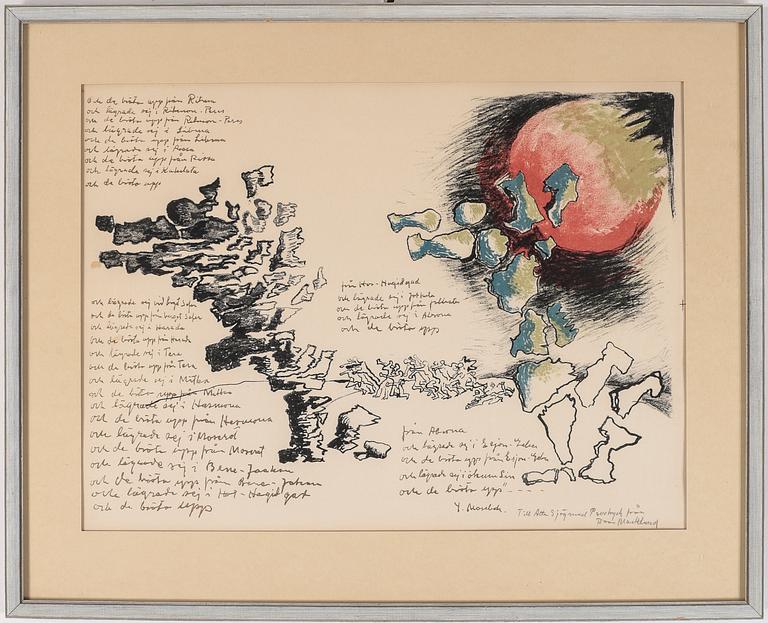 och de bröto upp från Ritma
och lägrade sej i Rimmon-Peres
och de bröto upp från Rimmon-Peres
och lägrade sej i Libna
och de bröto upp från Libna
och lägrade sej i Rissa
och de bröto upp från Rissa
och lägrade sej i Kehelata
och de bröto upp
och lägrade sej vid berget Sefer
och de bröto upp från berget Sefer
och lägrade sej i Harada
och de bröto upp från
och lägrade sej i Tera
och de bröto upp från Tera
och lägrade sej i Mitka
och de bröto upp från Mitka
och lägrade sej i Hasmona
och de bröto upp från Hasmona
och lägrade sej i Moserot
och de bröto upp från Moserot
och lägrade sej i Bene-Jaakan
och de bröto upp från Bene-Jaakan
och lägrade sej i Hor-Hagidgad
och de bröto upp
från Hor-Hagidgad
och lägrade sej i Jotbata
och de bröto upp från Jotbata
och lägrade sej i Abrona
och de bröto upp
från Abrona
och lägrade sej i Esjon-Geber
och de bröto upp från Esjon-Geber
och lägrade sej i öknen Sin
och de bröto upp"----
4. Mosebok.
Till Atte Sjögren Provtryck från